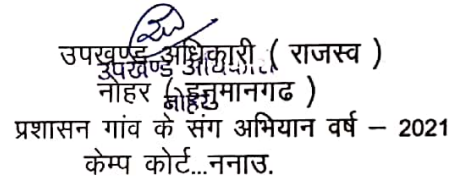 उपखण्ड अधिकारी ( राजस्व )
उपखण्ड अधिकारी
नोहर ( हनुमानगढ )
नोहर
प्रशासन गांव के संग अभियान वर्ष – 2021
केम्प कोर्ट...ननाउ.